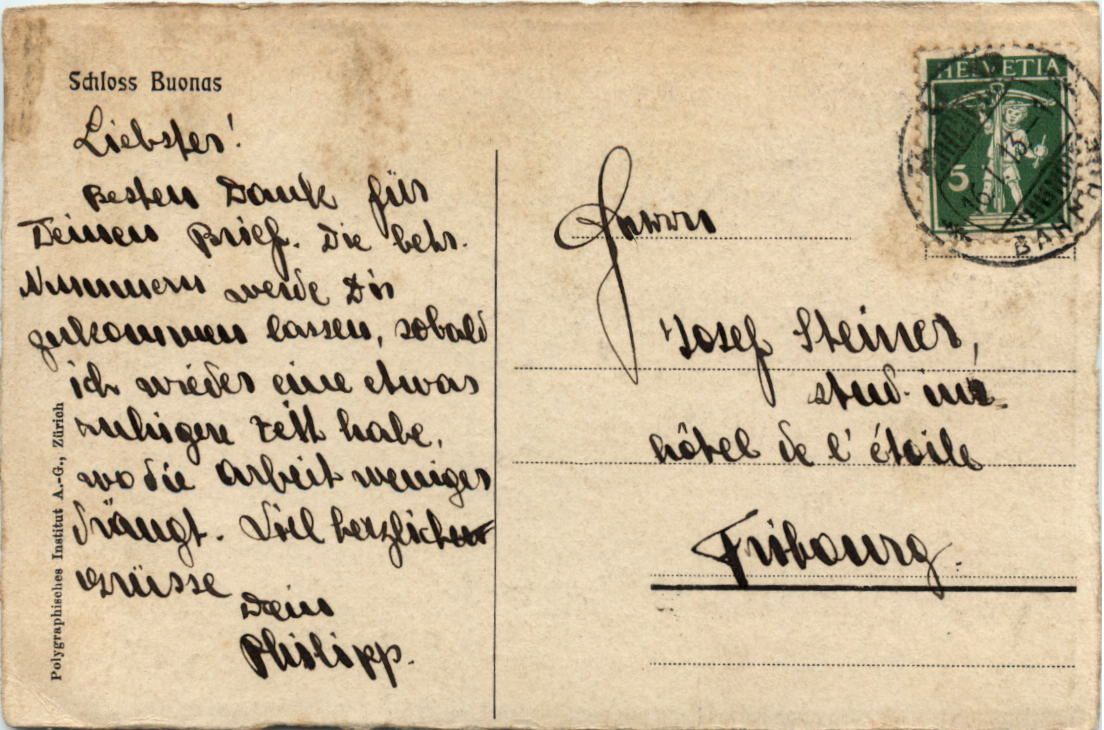 Schloss Buonas
Liebster!
Besten Dank für
Deinen Brief. Die betr.
Nummern werde Dir
zukommen lassen, sobald
ich wieder eine etwas
ruhigere Zeit habe,
wo die Arbeit weniger
drängt. Viel herzlichen
Grüsse
Dein
Philipp.
Polygraphisches Institut A.-G., Zürich
HELVETIA
5
BAHN
Herrn
Josef Steiner,
stud.
hôtel de l'étoile
Fribourg.